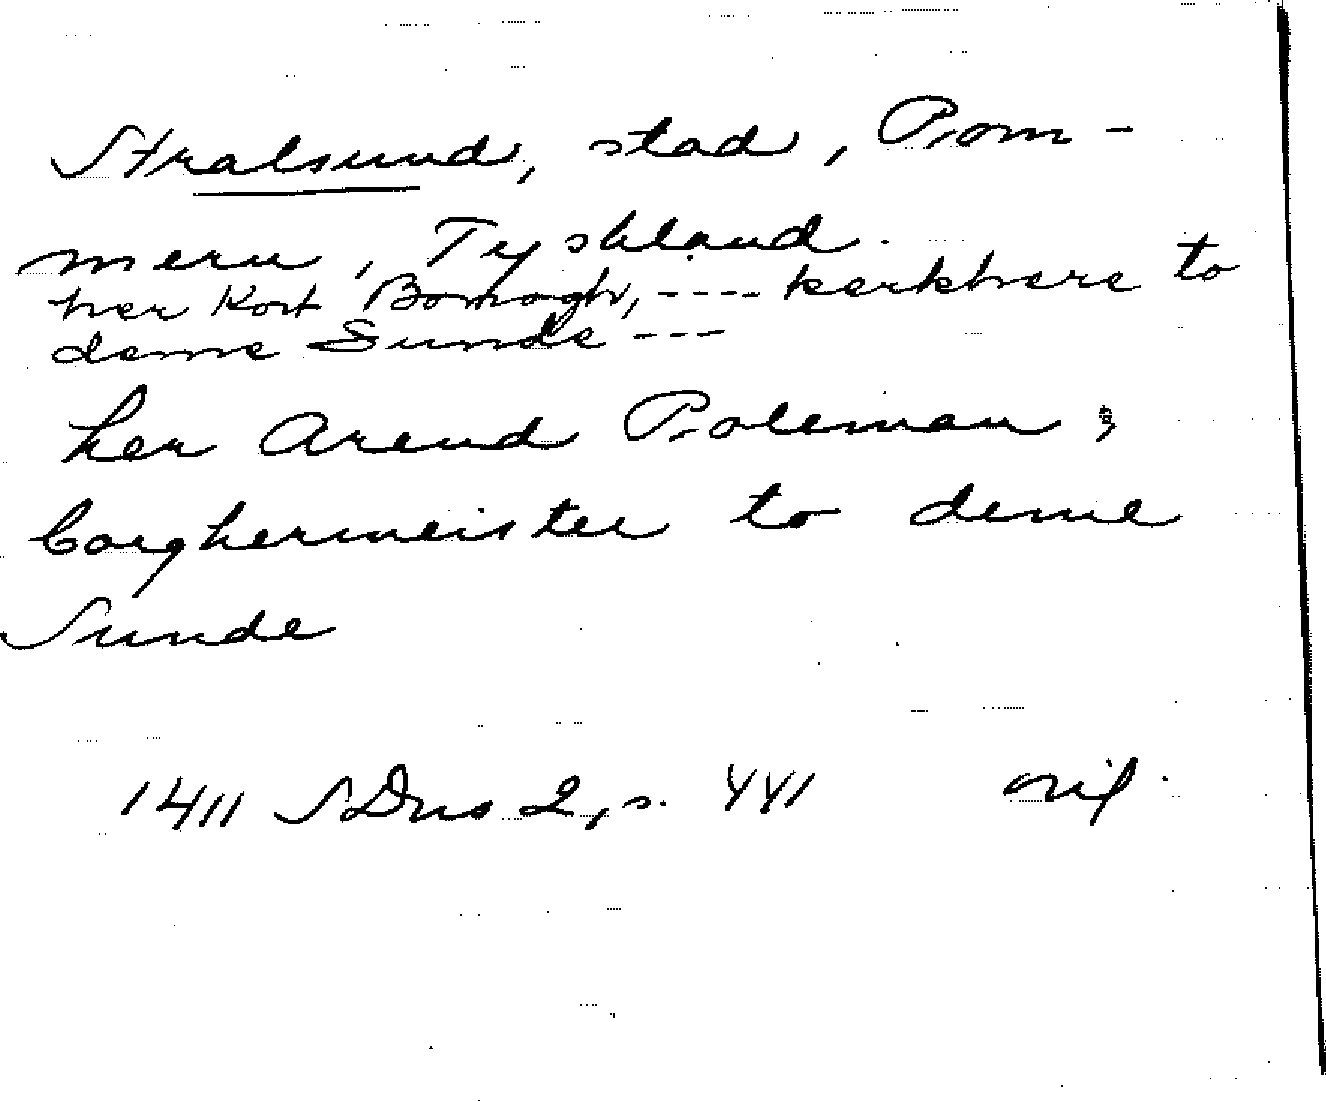 Stralsund, stad, Pom-
mern, Tyskland.
her Kort Bomogh, ---- kerkhere to
deme Sunde ---
her Arend Poleman,
borghermeister to deme
Sunde
1411 SDns 2, s. 441